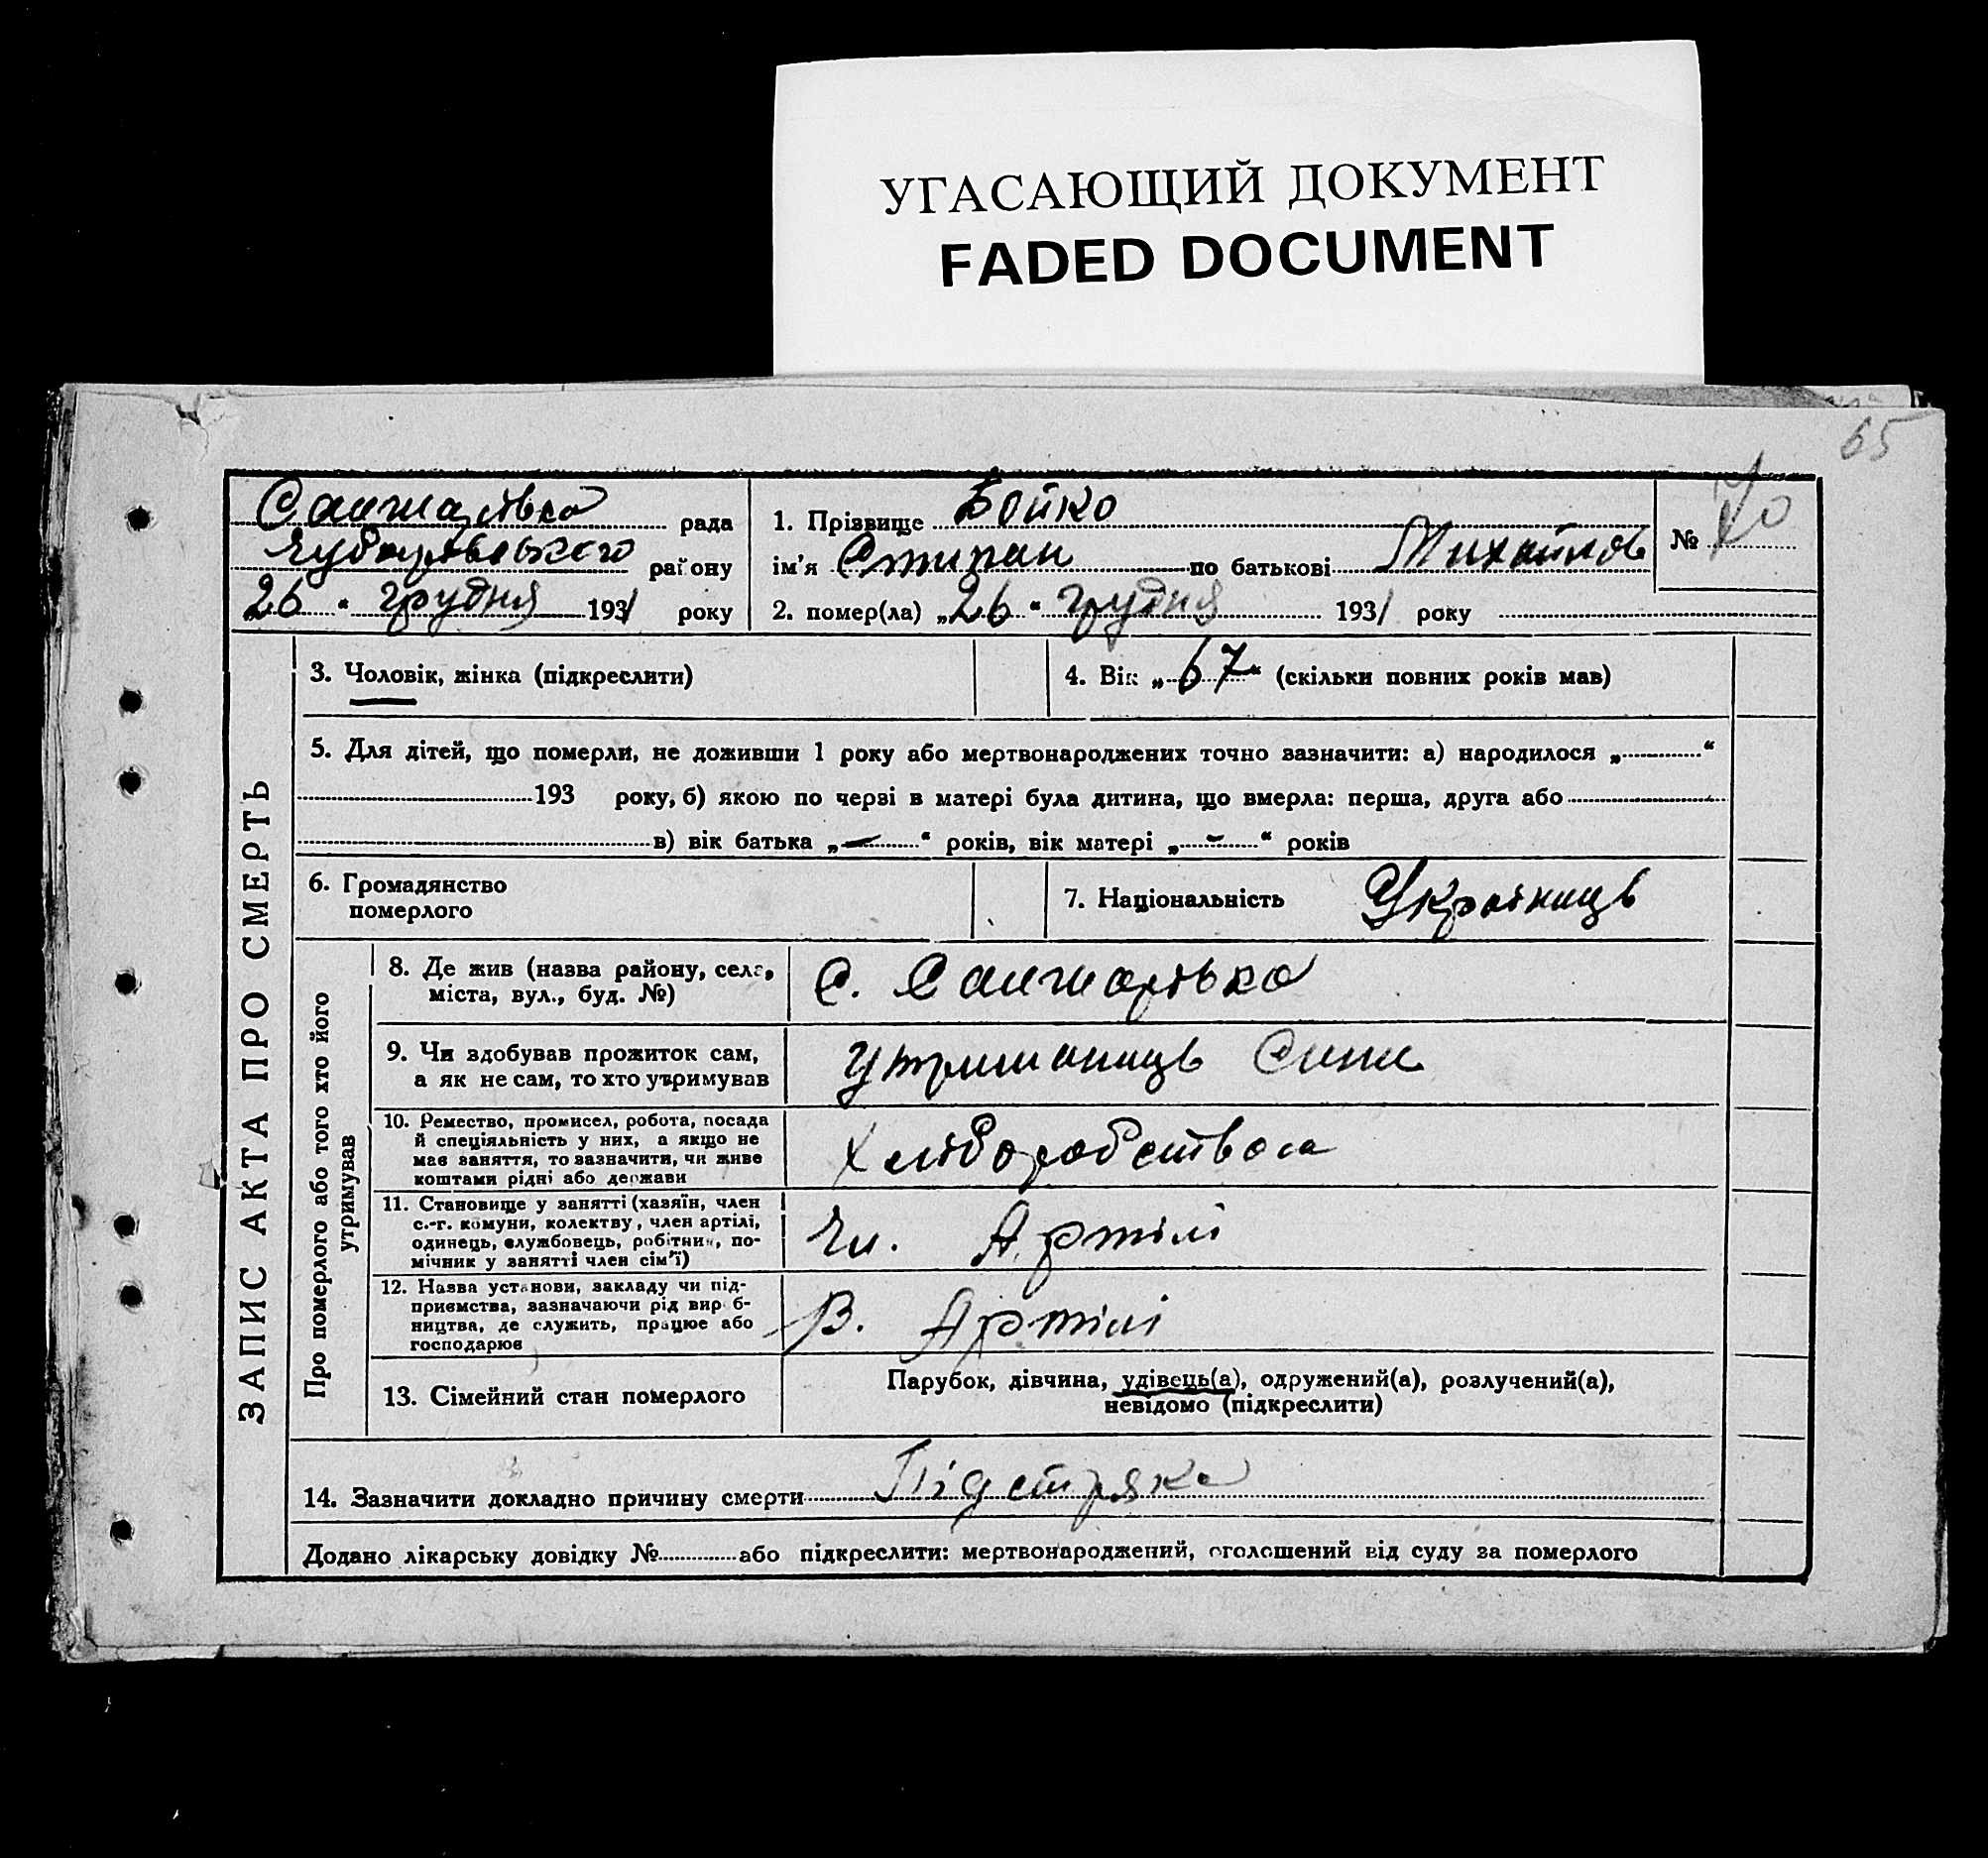 УГАСАЮЩИЙ ДОКУМЕНТ
FADED DOCUMENT
65
ЗАПИС АКТА ПРО СМЕРТЬ
Санжарівка рада
Чубарівського району
„26 “ грудня 1931 року
1. Прізвище Бойко
ім'я Степан по батькові Михайлов
2. помер(ла) „26 “ грудня 1931 року
№ 70
3. Чоловік, жінка (підкреслити)
4. Вік „67“ (скільки повних років мав)
5. Для дітей, що померли, не доживши 1 року або мертвонароджених точно зазначити: а) народилося „ “
193 року, б) якою по черзі в матері була дитина, що вмерла: перша, друга або
в) вік батька „ – “ років, вік матері „ – “ років
6. Громадянство
померлого
7. Національність Українець
Про померлого або того хто його
утримував
8. Де жив (назва району, села,
міста, вул., буд. №)
С. Санжарівка
9. Чи здобував прожиток сам,
а як не сам, то хто утримував
Утриманець Сина
10. Ремество, промисел, робота, посада
й спеціяльність у них, а якщо не
має заняття, то зазначити, чи живе
коштами рідні або держави
Хліборобства
11. Становище у занятті (хазяїн, член
с.-г. комуни, колектву, член артілі,
одинець, службовець, робітник, по-
мічник у занятті член сім'ї)
Чл. Артілі
12. Назва установи, закладу чи під-
приємства, зазначаючи рід вироб-
ництва, де служить, працює або
господарює
В. Артілі
13. Сімейний стан померлого
Парубок, дівчина, удівець(а), одружений(а), розлучений(а),
невідомо (підкреслити)
14. Зазначити докладно причину смерти
Додано лікарську довідку № або підкреслити: мертвонароджений, оголошений від суду за померлого